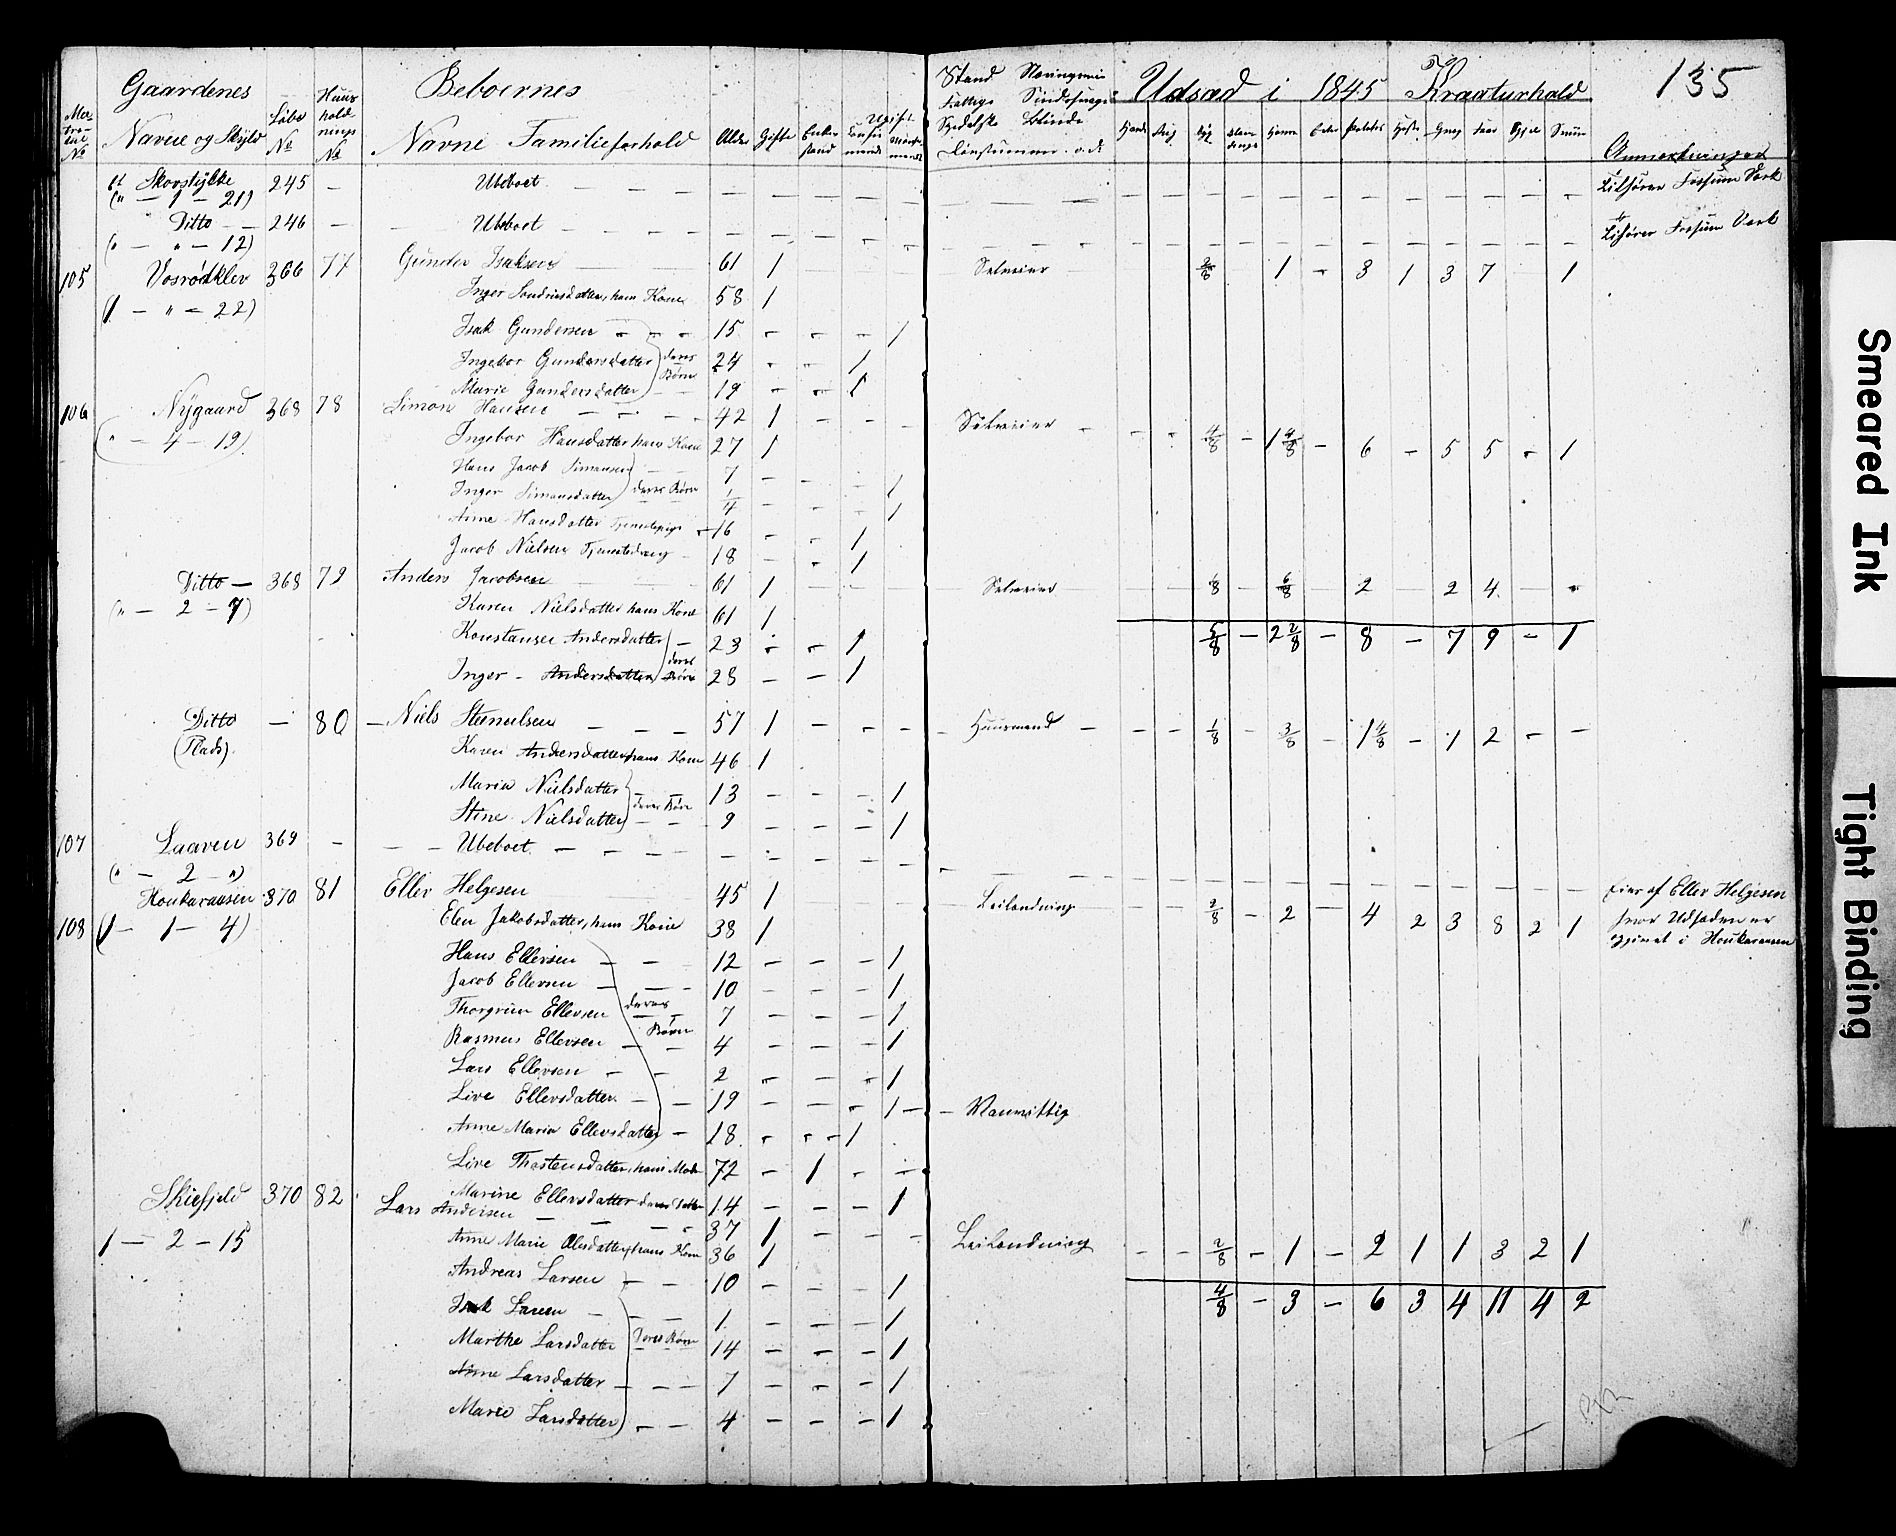 135
Gaardenes
Navne og Skyld
Løbe No
Huusholdnings No
Beboernes
Navne Familieforhold
Alder Gifte
Udsæd i 1845 Kreaturhold
Anmærkninger
Skovstykke 245 — Ubeboet — tilhører Fossum Værk
(" — 1 — 21)
Ditto 246 — Ubeboet — tilhører Fossum Værk
(" — " — 12)
105 Vosrødklev 366 77 Gunder Isaksen 61 1 Selveier 1 — 3 1 3 7 — 1
(1 — " — 22)
Inger hans Kone 58 1
Isak Gundersen 15 1
Ingebor Gundersdatter deres Børn 24 1
Marie Gundersdatter 19 1
106 Nygaard 368 78 Simon Hansen 42 1 Selveier 4/8 — 1 4/8 — 6 — 5 5 — 1
(" — 4 — 19)
Ingebor Hansdatter hans Kone 27 1
Hans Jacob Simonsen 7 1
Inger Simonsdatter deres Børn 1/4 1
Anne Hansdatter Tjenestepige 16 1
Jacob Nielsen Tjenestedreng 18 1
Ditto — 368 79 Anders Jacobsen 61 1 Selveier 1/8 — 6/8 — 2 — 2 4 —
(" — 2 — 7)
Karen Nielsdatter hans Kone 61 1
5/8 — 2 2/8 — 8 — 7 9 — 1
Konstanse Andersdatter 23 1
Inger Andersdatter deres Børn 28 1
Ditto — 80 Niels 57 1 Huusmand 1/8 — 3/8 — 1 4/8 — 1 2 — —
(Plads)
Karen Andersdatter hans Kone 46 1
Maria Nielsdatter deres Børn 13 1
Stine Nielsdatter 9 1
107 Laaven 369 — Ubeboet
(" — 2 — ")
Houkaraasen 370 81 Ellev Helgesen 45 1 Leilænding 2/8 — 2 — 4 2 3 8 2 1 Eier af Ellev Helgesen
108 (1 — 1 — 4) Elen Jakobsdatter, hans Kone 38 1 hvor Udsæden er
i Houkaraasen
Hans Ellevsen 12 1
Jacob Ellevsen 10 1
Thorgrim Ellevsen deres Børn 7 1
Rasmus Ellevsen 4 1
Lars Ellevsen 2 1
Live Ellevsdatter 19 1 Vanvittig
Anne Maria Ellevsdatter 18 1
Live Thostensdatter, hans Moder 72 1
Marine Ellevsdatter deres Datter 14 1
Skiefjeld 370 82 Lars Andersen 37 1 Leilænding 2/8 — 1 — 2 1 1 3 2 1
1 — 2 — 15
Anne Marie Olesdatter, hans Kone 36 1
Andreas Larsen 10 1
4/8 — 3 — 6 3 4 11 4 2
Isak Larsen 1 1
Marthe Larsdatter deres Børn 14 1
Anne Larsdatter 7 1
Marie Larsdatter 4 1
Smeared Ink
Tight Binding